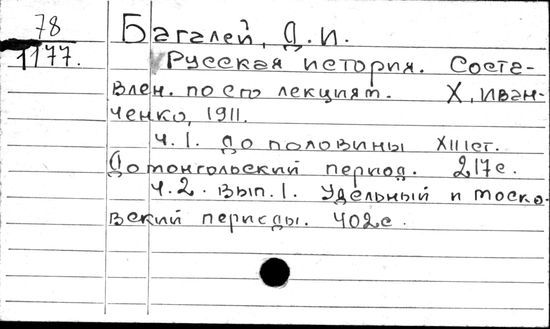 78
1177.
Багалей, Д.И.
Русская история. Соста-
влен. по его лекциям. Х, Иван-
ченко, 1911.
ч.1. До половины XIII ст.
Домонгольский период. 217 с.
ч.2. Вып.1. Удельный и моско-
вский периоды. 402 с.